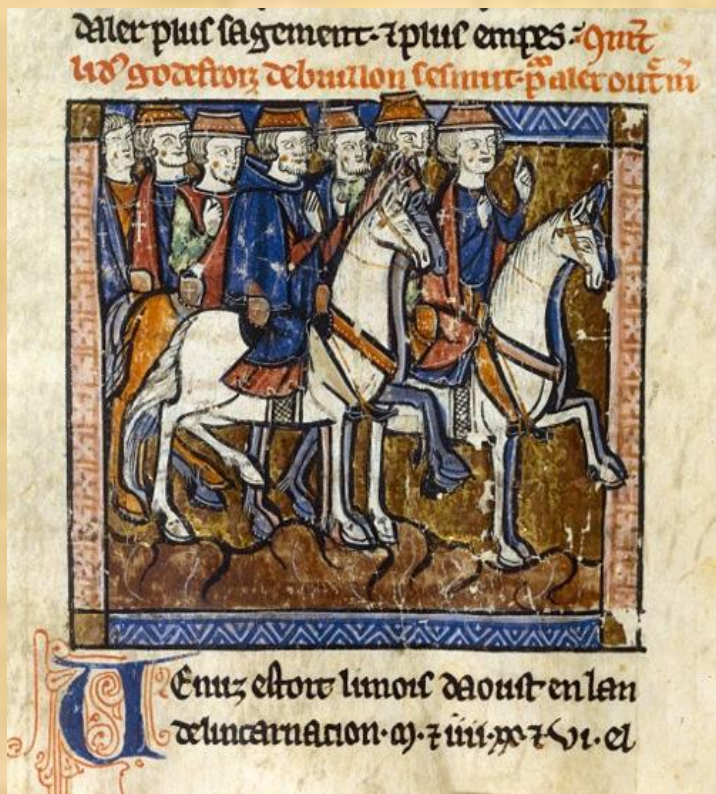 daler plus sagement · ⁊ plus empes : Qñt
li dꝰ godefroiz de buillon sesmut · p̃ aler out̃ m̃
Venuz estoit li mois daoust en lan
de lincarnacion · m · ⁊ iiii · xx ⁊ xvi · el